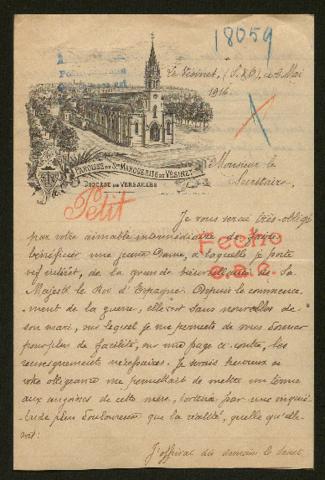 18059
Le Vésinet, (S.&O.), ce 2 Mai
1916.
A
PAROISSE DE Ste MARGUERITE DU VÉSINET
DIOCÈSE DE VERSAILLES
Monsieur le
Secrétaire,
Petit
Je vous serai très obligé
par votre aimable intermédiaire de faire
Fecho
bénéficier une jeune Dame, à laquelle je porte
vif intérêt, de la grande bienveillance de Sa
Majesté le Roi d'Espagne. Depuis le commence-
ment de la guerre, elle est sans nouvelles de
son mari, sur lequel je me permets de vous donner
pour plus de facilité, sur une page ci-contre, les
renseignements nécessaires. Je serais heureux si
votre obligeance me permettait de mettre un terme
aux angoisses de cette mère, torturée par une inquié-
tude plus douloureuse que la réalité, quelle qu'elle
soit.
J'offrirai dès demain le saint